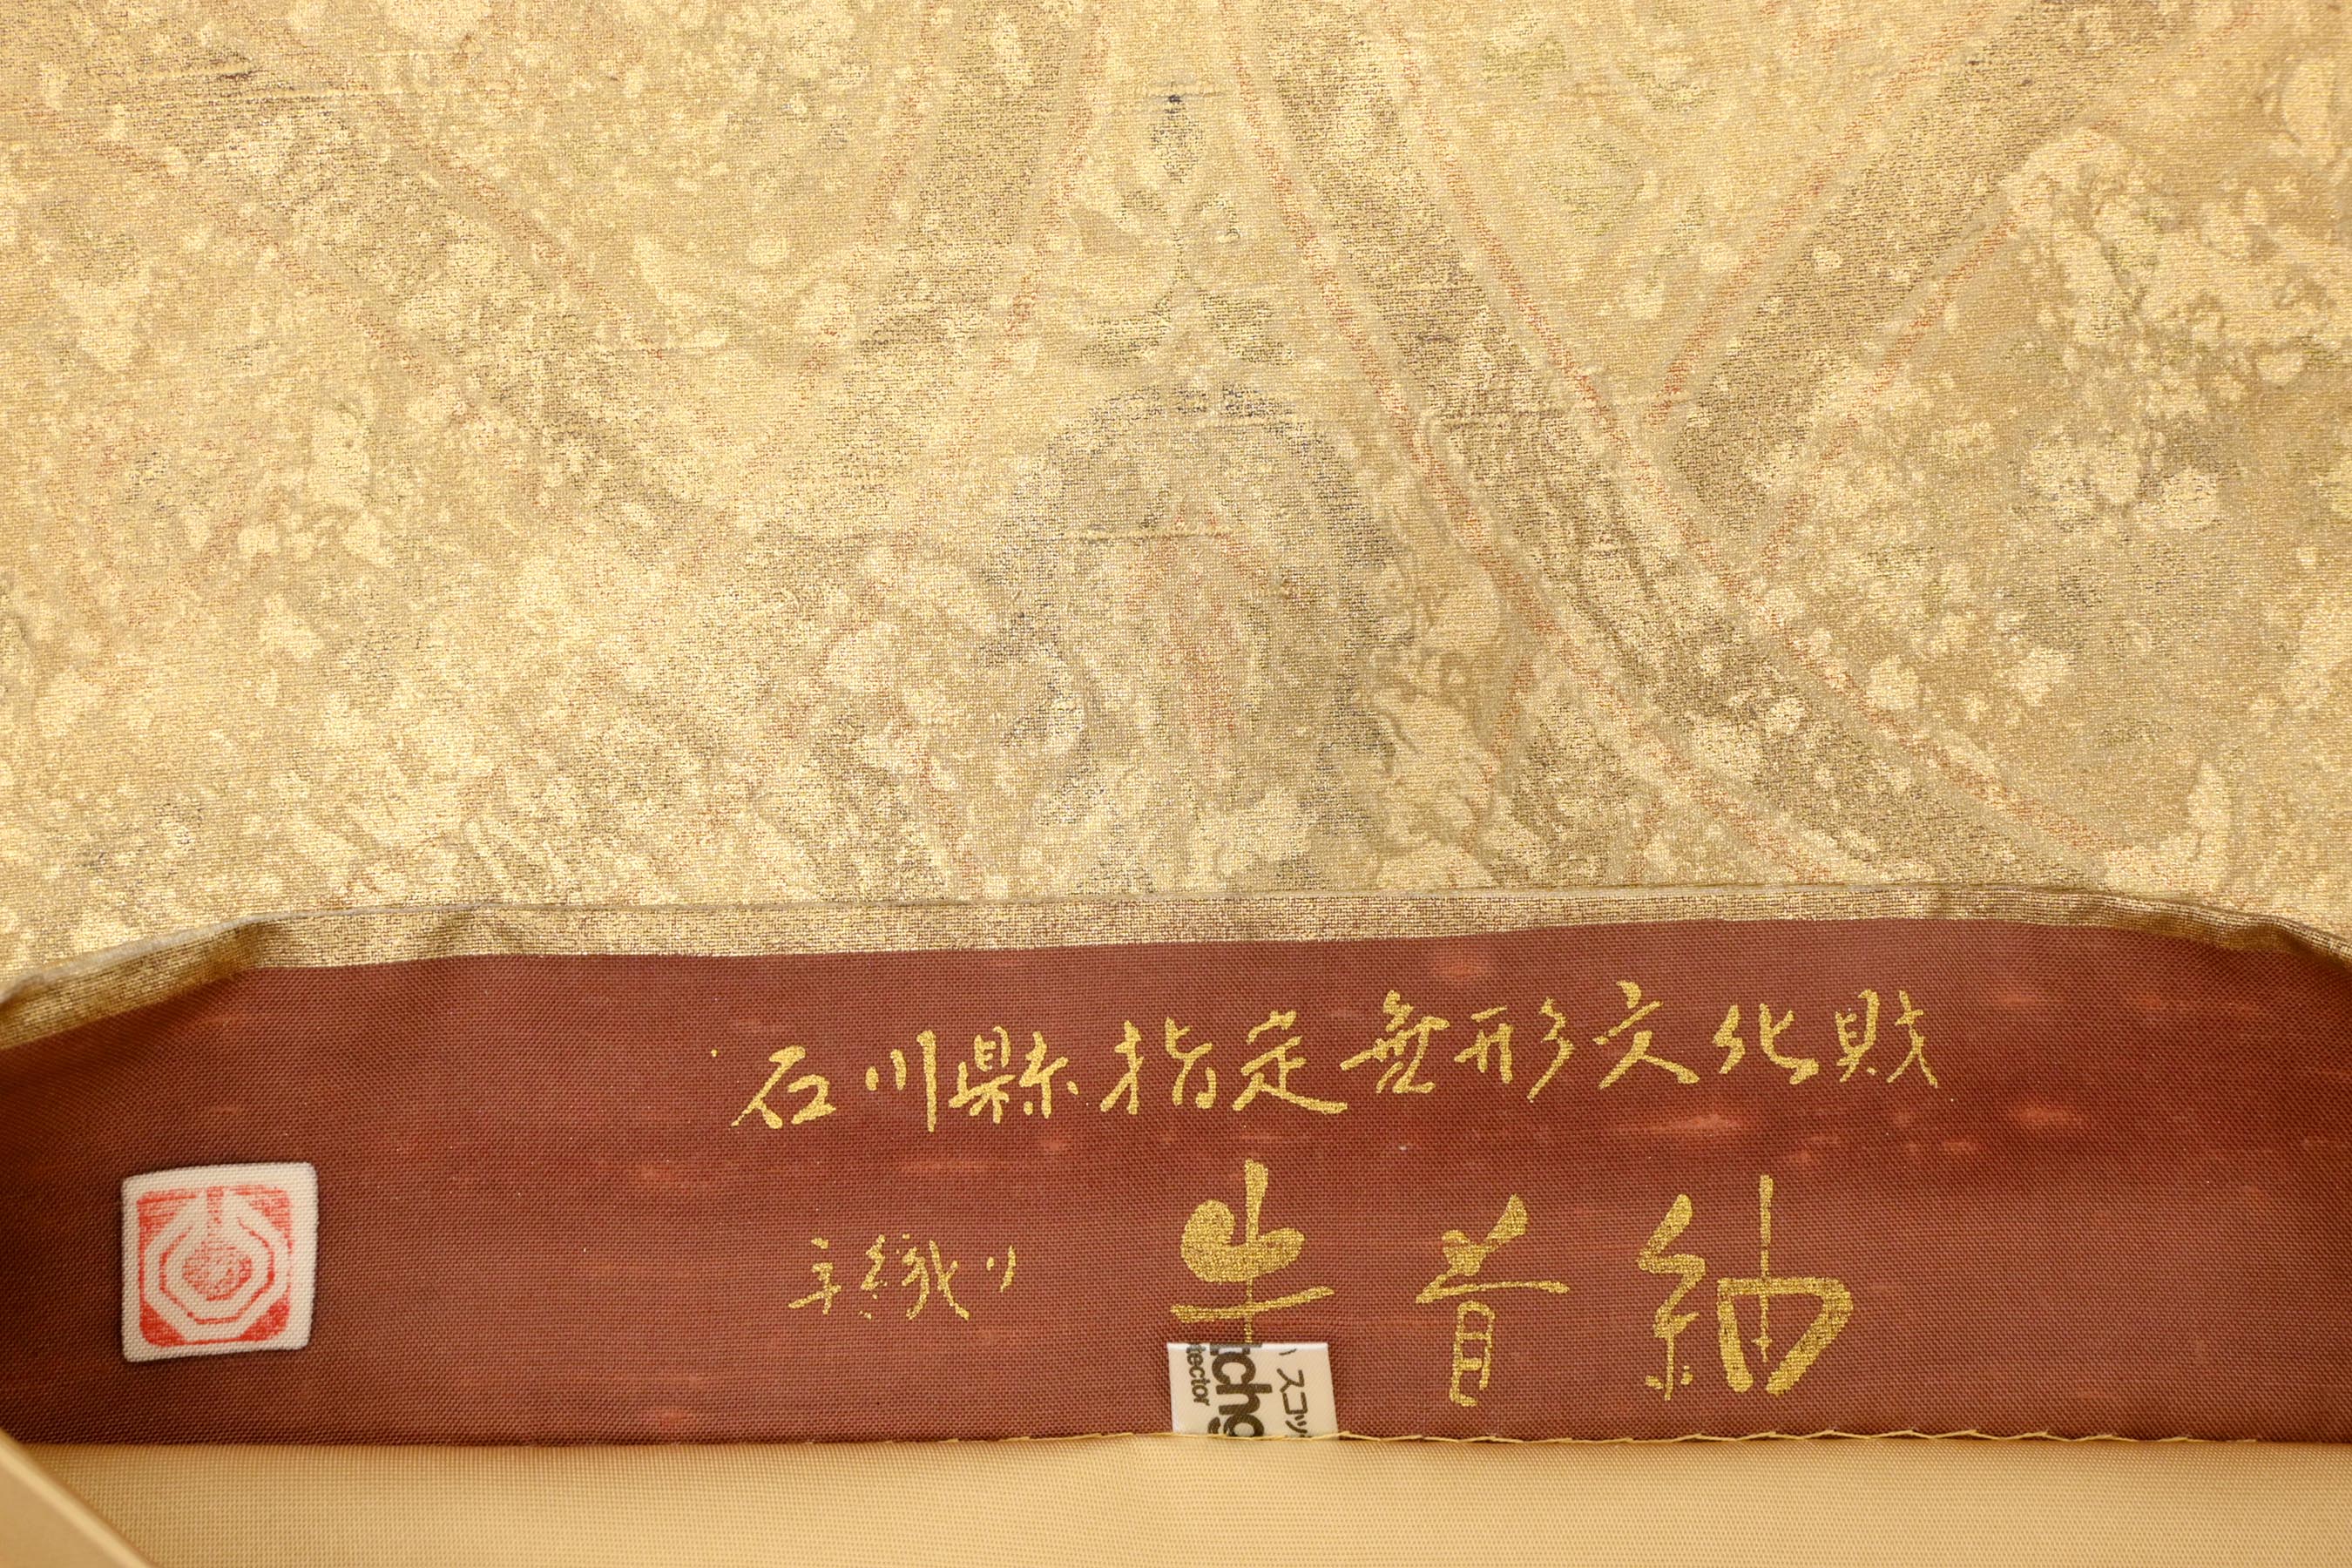 石川縣指定無形文化財
手織り 牛首紬
スコッ
tchg
tector